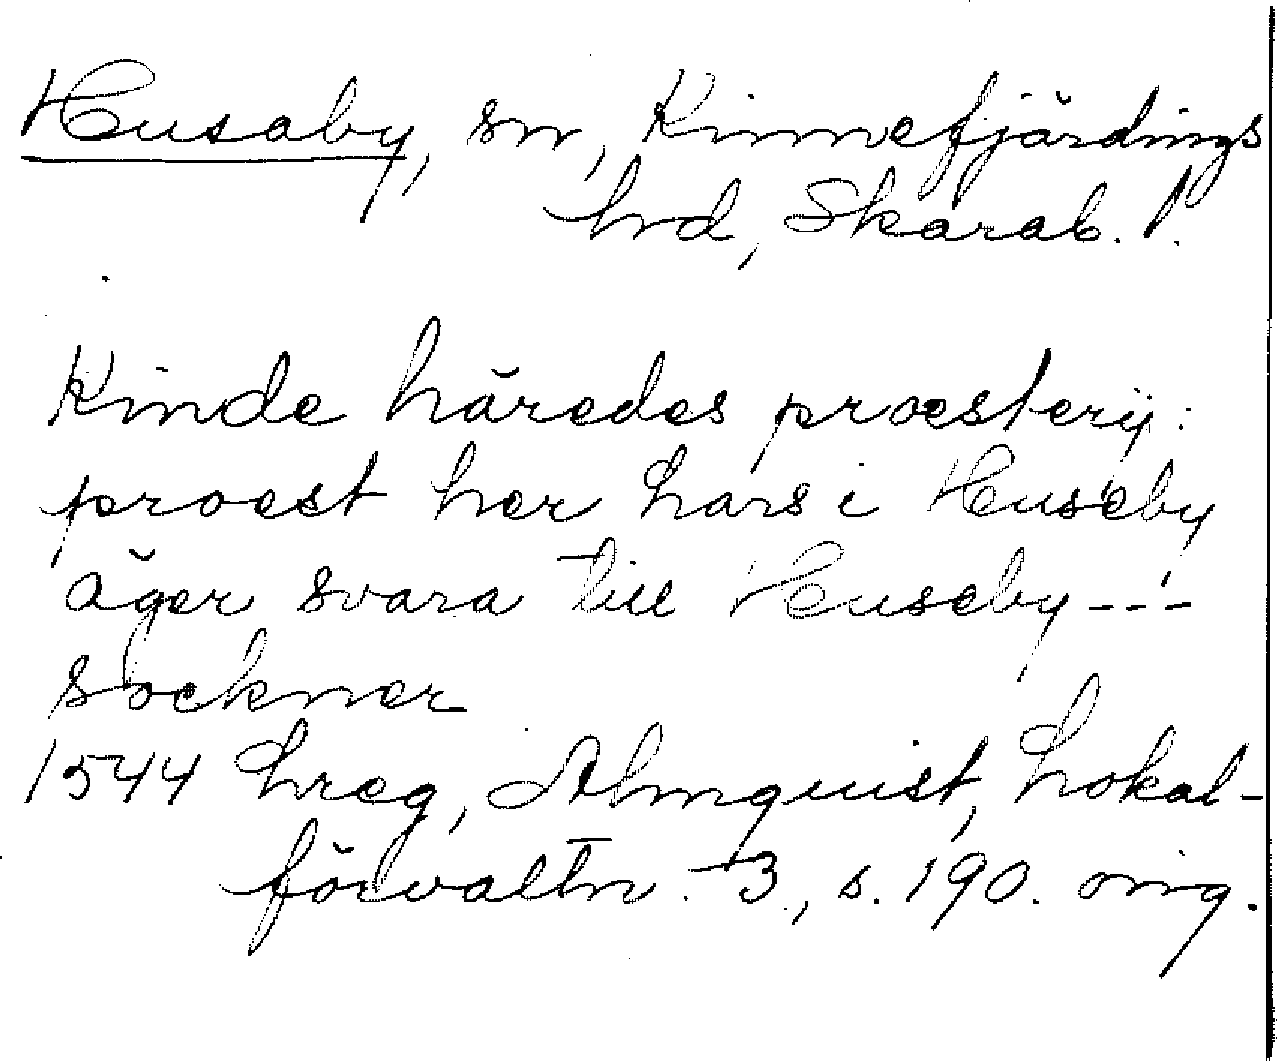 Husaby, sn, Kinnefjärdings
hrd, Skarab. l.
Kinde häredes proesterij:
proest her Lars i Huseby
äger svara till Huseby---
sockner
1544 Lreg, Almquist, Lokal-
förvaltn. 3, s. 190. orig.